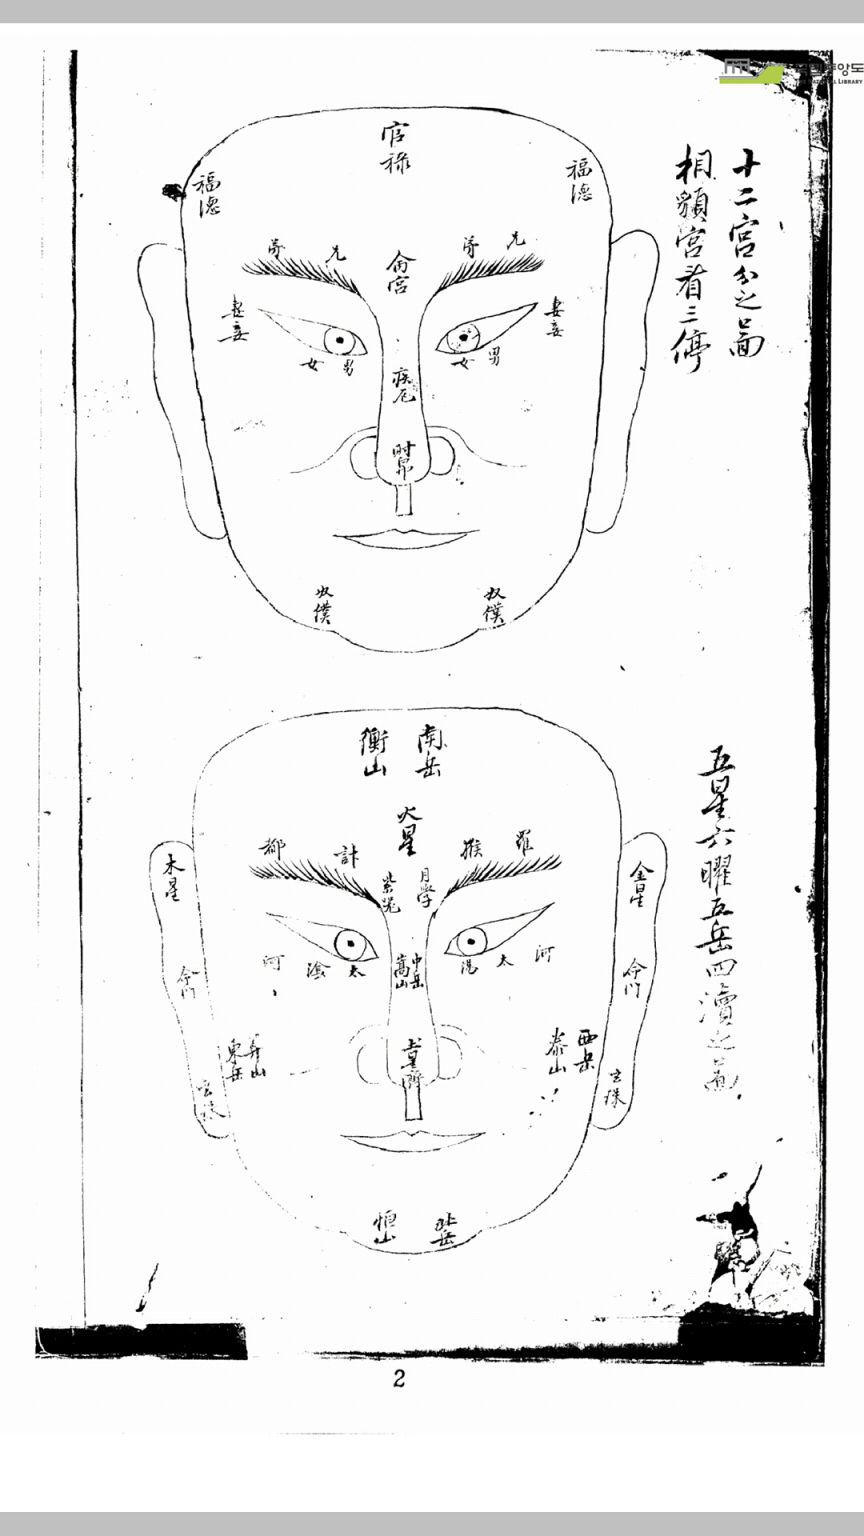 十二宮分之啚
相貌宮看三停
官
祿
福
德
福
德
弟
兄
弟
兄
命宮
妻妾
妻妾
女
男
女
男
疾厄
財帛
奴僕
奴僕
五星六曜五岳四瀆之啚
南岳
衡山
火星
都
計
猴
羅
紫
月孛
木星
金星
命门
命门
河
陰
太
陽
太
河
中岳
嵩山
東岳
西岳
泰山
土星
玄珠
玄珠
北岳
恒山
2